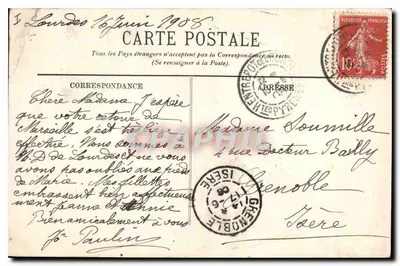 Lourdes 16 Juin 1908
CARTE POSTALE
Tous les Pays étrangers n'acceptent pas la Correspondance au recto.
(Se renseigner à la Poste)
CORRESPONDANCE
ADRESSE
Chère Madame J'espère
que votre retour de
Marseille s'est
effectué. Nous sommes à
N.D de Lourdes et ne vous
avons pas oubliés aux pieds
de Marie. Mes fillettes
embrassent bien affectueusement
Jeanne et
Bien amicalement à vous
Paulin
Madame
4 rue Docteur Bailly
Grenoble
Isère
GRENOBLE
ISÈRE
REPUBLIQUE FRANÇAISE
10